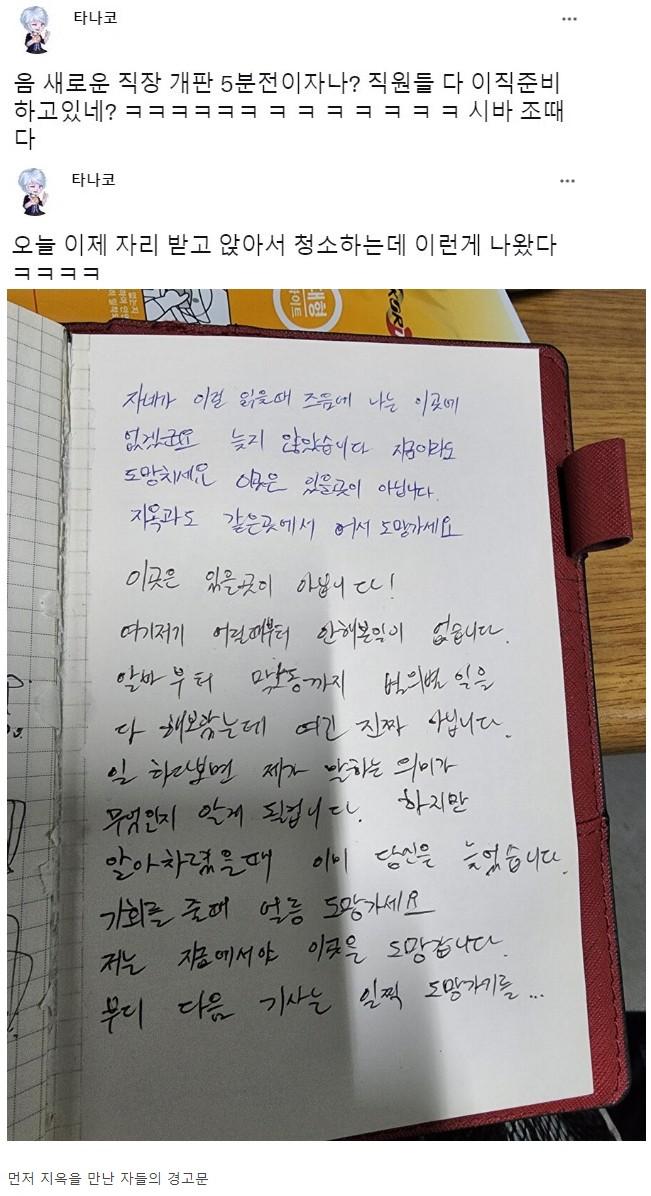 타나코
음 새로운 직장 개판 5분전이자나? 직원들 다 이직준비
하고있네? ㅋㅋㅋㅋㅋㅋ ㅋ ㅋ ㅋ ㅋ ㅋ ㅋ ㅋ 시바 조때
다
타나코
오늘 이제 자리 받고 앉아서 청소하는데 이런게 나왔다
ㅋㅋㅋㅋ
대형
자네가 이럴 읽을때 즈음에 나는 이곳에
없겠군요 늦지 않았습니다 지금이라도
도망치세요 이곳은 있을곳이 아닙니다.
지옥과도 같은곳에서 어서 도망가세요
이곳은 있을곳이 아닙니다!
여기저기 어릴때부터 안해본일이 없습니다.
알바부터 막노동까지 별의별 일을
다 해보았는데 여긴 진짜 아닙니다.
일 하다보면 제가 말하는 의미가
무엇인지 알게 될겁니다. 하지만
알아차렸을때 이미 당신은 늦었습니다.
기회를 줄때 얼릉 도망가세요
저는 지금에서야 이곳을 도망갑니다.
부디 다음 기사는 일찍 도망가기를...
먼저 지옥을 만난 자들의 경고문